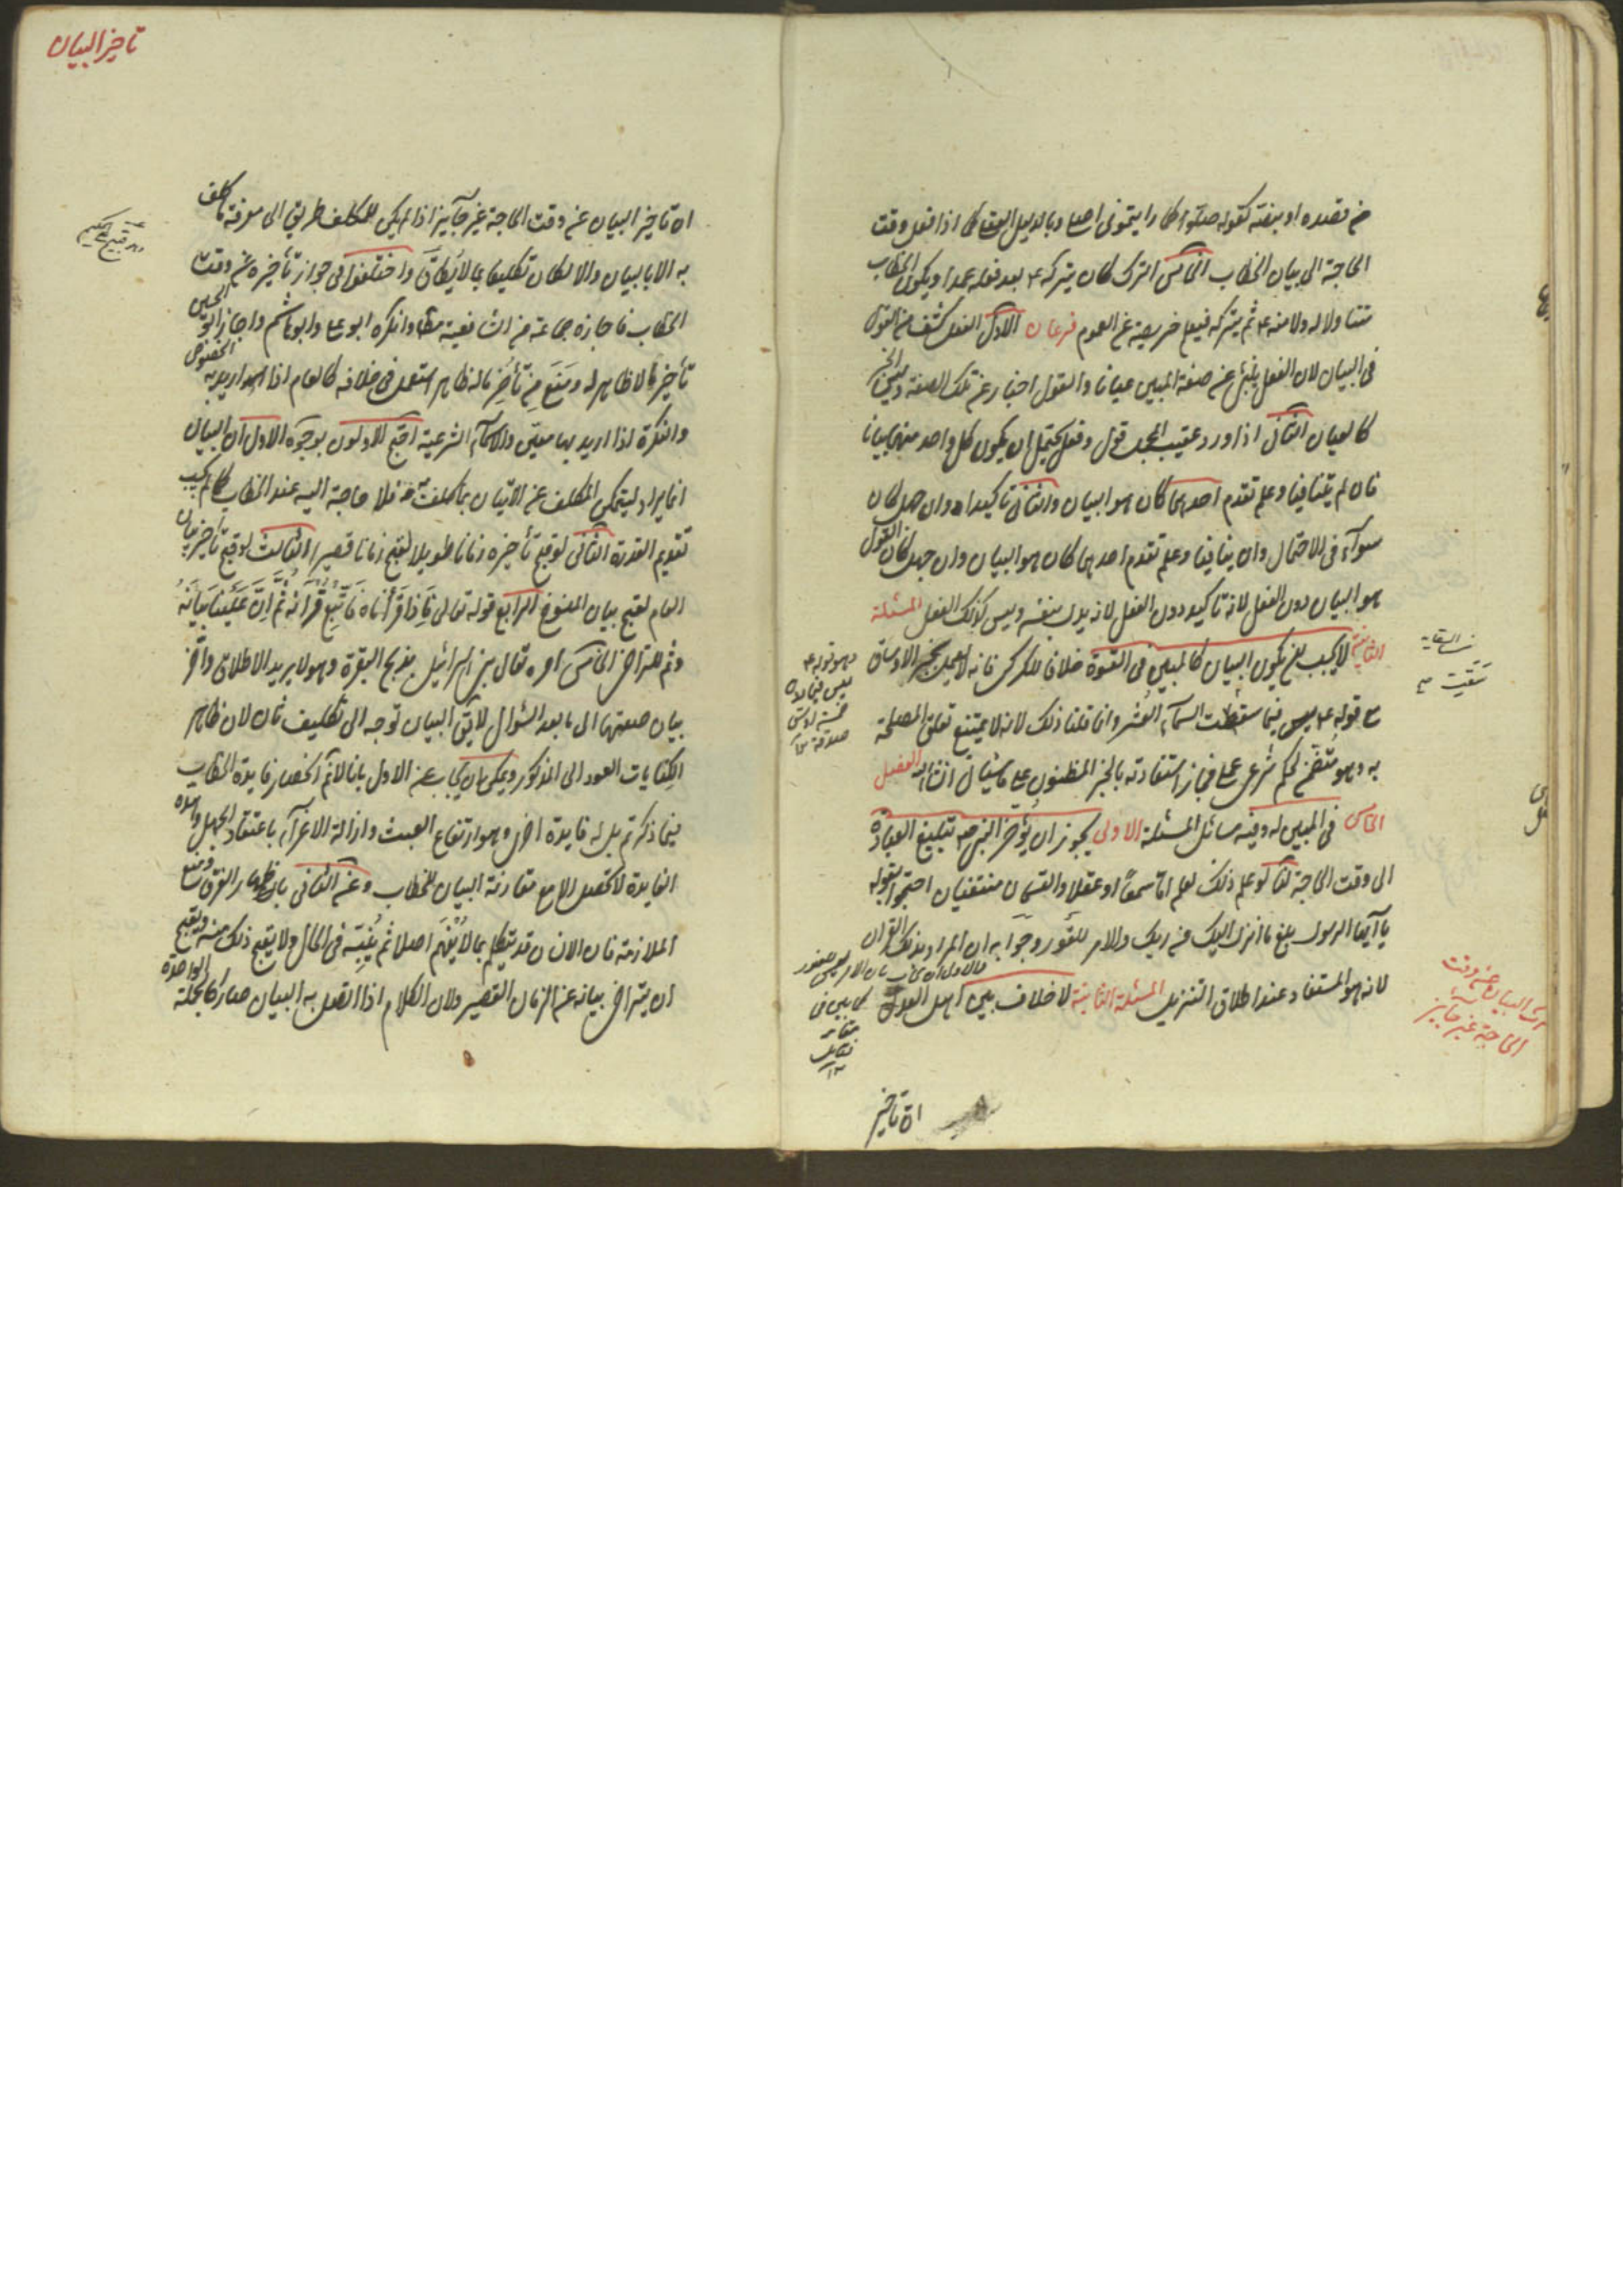 من قصده او بنفسه كقوله صلوا كما رايتموني اصلي و بالدليل العقلي كما اذا فعل وقت
الحاجة الى بيان الخطاب الخامس الترك كان يتركه ع بعد فعله عمدا و يكون الخطاب
متناولا له ولامته ع ثم يتركه فيعلم خروجه عن العموم فرعان الاول الفعل اكشف من القول
في البيان لان الفعل ينبئ عن صفة المبين عيانا والقول اخبار عن تلك الصفة وليس الخبر
كالعيان الثاني اذا ورد عقيب المجمل قول و فعل يحتمل ان يكون كل واحد منهما بيانا
فان لم يتنافيا و علم تقدم احدهما كان هو البيان والثاني تاكيدا وان جهل كان
سواء في الاحتمال وان ينافيا و علم تقدم احدهما كان هو البيان وان جهل كان القول
هو البيان دون الفعل لانه تاكيد دون الفعل لانه يدل بنفسه وليس كذلك الفعل المسئلة
الثانية لا يجب ان يكون البيان كالمبين في القوة خلافا للكرخي فانه لم يعمل بخبر الاوساق
مع قوله ع فيما سقت السماء العشر وانما قلنا ذلك لانه لا يمتنع تعلق المصلحة
به وهو متضمن لحكم شرعي عملي فجاز استفادته بالخبر المظنون على ما سياتي ان شاء الله الفصل
الخامس في المبين له وفيه مسائل المسئلة الاولى يجوز ان يؤخر النبي ص تبليغ العبادة
الى وقت الحاجة لنا لو علم ذلك لعلم اما سمعًا او عقلا والقسمان منتفيان احتجوا بقوله
يا ايها الرسول بلغ ما انزل اليك من ربك والامر للفور وجوابه ان المراد بذلك القرآن
لانه هو المستفاد عند اطلاق التنزيل المسئلة الثانية لا خلاف بين اهل العدل
وهو قوله ع
ليس فيما دون
خمسة اوسق
صدقة
سقيت
البيان عن وقت
الحاجة غير جايز
ان تاخير
تاخير البيان
ان تاخير البيان عن وقت الحاجة غير جايز اذا لم يكن للمكلف طريق الى معرفة ما كلف
به الا بالبيان والا لكان تكليفا بما لا يطاق واختلفوا في جواز تأخيره عن وقت
الخطاب فاجازه جماعة من الشافعية مطلقا وانكره ابو علي وابو هاشم واجاز ابو الحسين
تأخير ما لا ظاهر له و منع من تأخير ما له ظاهر استعمل في خلافه كالعام اذا اريد به الخصوص
والنكرة اذا اريد بها معين والاسماء الشرعية احتج الاولون بوجوه الاول ان البيان
انما يراد ليتمكن المكلف من الاتيان بما كلف به فلا حاجة اليه عند الخطاب كما لم يجب
تقديم القدرة الثاني لو قبح تأخيره زمانا طويلا لقبح زمانا قصيرا الثالث لو قبح تأخير بيان
العام لقبح بيان المنسوخ الرابع قوله تعالى فَاِذَا قَرَأْنَاهُ فَاتَّبِعْ قُرْآنَهُ ثُمَّ اِنَّ عَلَيْنَا بَيَانَهُ
وثم للتراخي الخامس امره تعالى بني اسرائيل بذبح البقرة وهو لا يريد الاطلاق واخر
بيان صفتها الى ما بعد السؤال لا يق البيان توجه الى تكليف ثان لان ظاهر
الكنايات العود الى المذكور و يمكن ان يجاب عن الاول بانا لا نم انحصار فايدة الخطاب
فيما ذكرتم بل له فايدة اخرى وهو ارتفاع العبث وازالة الاغراء باعتقاد الجهل وهذه
الفايدة لا تحصل الا مع مقارنة البيان للخطاب وعن الثاني بان اظهار الفرق ومنع
الملازمة فان الانسان قد يتكلم بما لا يفهم اصلا ثم يبينه في الحال ولا يقبح ذلك منه ويقبح
ان يتراخى بيانه عن الزمان القصير ولان الكلام اذا اتصل به البيان صار كالجملة الواحدة